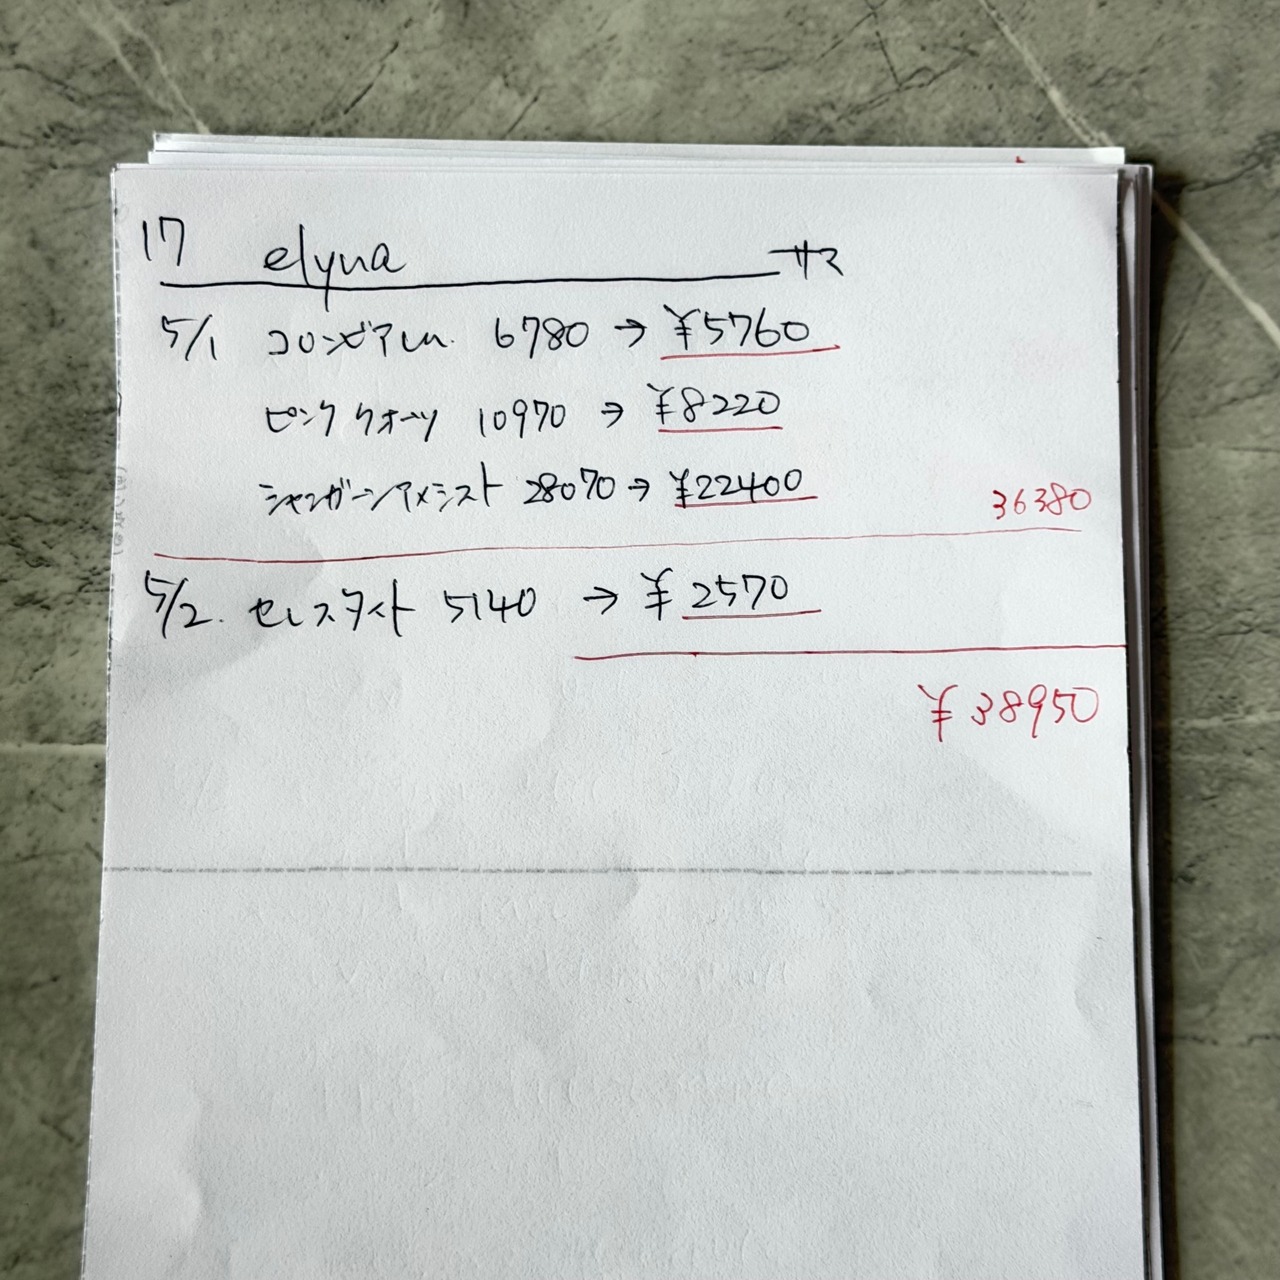 17 elyna サマ
5/1 コロンビアレム. 6780 → ¥5760
ピンククオーツ 10970 → ¥8220
シャンガーンアメシスト 28070 → ¥22400
36380
5/2. セレスタイト 5140 → ¥2570
¥38950